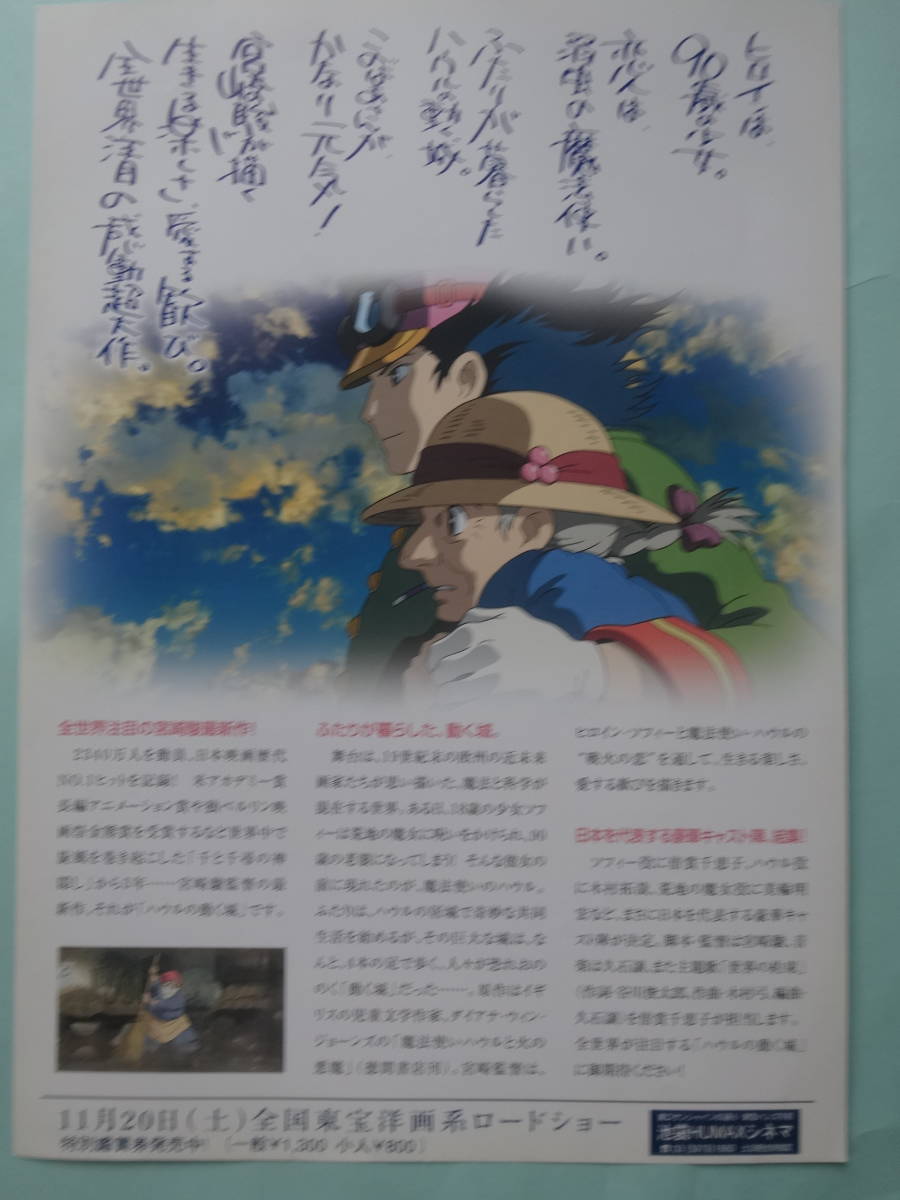 ヒロインは、
90歳の少女。
恋人は、
弱虫の魔法使い。
ふたりが暮らした
ハウルの動く城。
このばあさんが、
かなり元気!
宮崎駿が描く
生きる楽しさ、愛する歓び。
全世界注目の感動超大作。
全世界注目の宮崎駿最新作!
2340万人を動員、日本映画歴代
NO.1ヒットを記録! 米アカデミー賞
長編アニメーション賞や独ベルリン映
画祭金熊賞を受賞するなど世界中で
旋風を巻き起こした「千と千尋の神
隠し」から3年……宮崎駿監督の最
新作、それが「ハウルの動く城」です。
ふたりが暮らした、動く城。
舞台は、19世紀末の欧州の近未来
画家たちが思い描いた、魔法と科学が
混在する世界。ある日、18歳の少女ソフ
ィーは荒地の魔女に呪いをかけられ、90
歳の老婆になってしまう! そんな彼女の
前に現れたのが、魔法使いのハウル。
ふたりは、ハウルの居城で奇妙な共同
生活を始めるが、その巨大な城は、な
んと、4本の足で歩く、人々が恐れおの
のく「動く城」だった……。原作はイギ
リスの児童文学作家、ダイアナ・ウィン・
ジョーンズの「魔法使いハウルと火の
悪魔」(徳間書店刊)。宮崎監督は、
ヒロイン・ソフィーと魔法使い・ハウルの
“戦火の恋”を通して、生きる楽しさ、
愛する歓びを描きます。
日本を代表する豪華キャスト陣、結集!
ソフィー役に倍賞千恵子、ハウル役
に木村拓哉、荒地の魔女役に美輪明
宏など、まさに日本を代表する豪華キャ
スト陣が決定。脚本・監督は宮崎駿、音
楽は久石譲、また主題歌「世界の約束」
(作詞・谷川俊太郎、作曲・木村弓、編曲・
久石譲)を倍賞千恵子が担当します。
全世界が注目する「ハウルの動く城」
に御期待ください!
11月20日(土)全国東宝洋画系ロードショー
特別鑑賞券発売中! (一般¥1,300 小人¥800)
池袋HUMAXシネマ